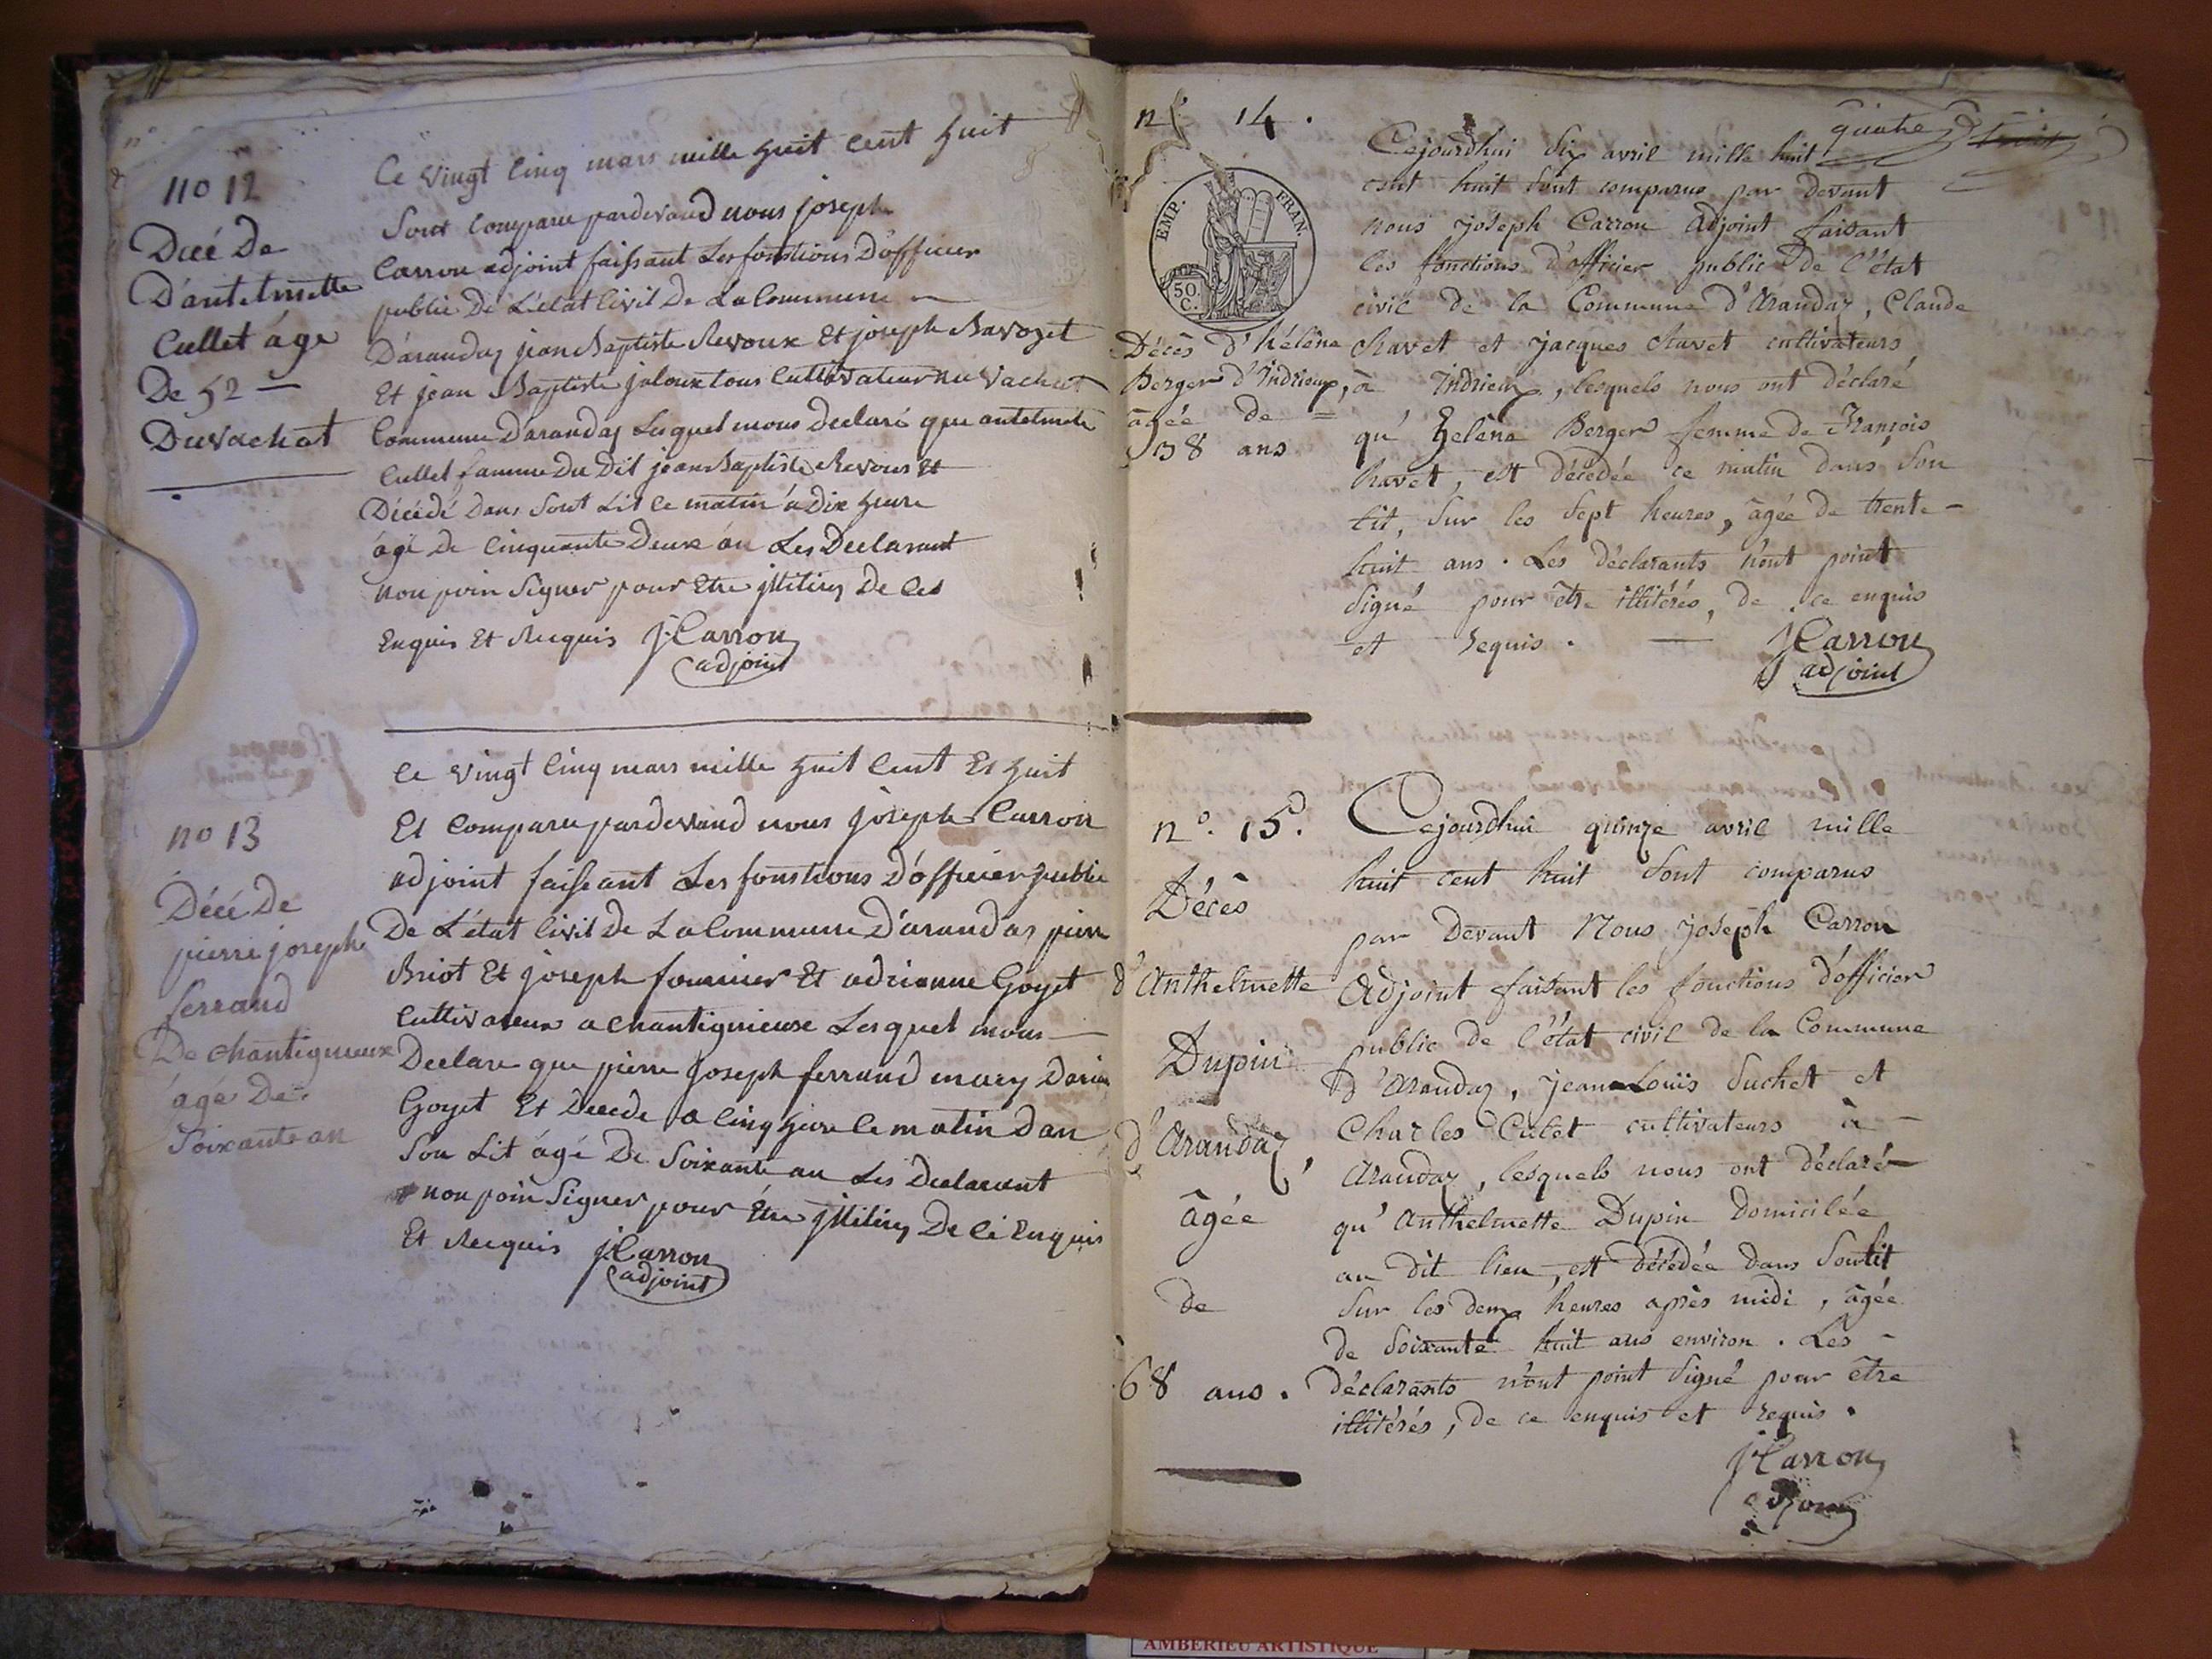 no 12
Décé De
D'antelmette
Cullet áge
De 52 —
Du vachat
Ce vingt cinq mars mille huit cent huit
Sont Comparu pardevand nous joseph
Carron adjoint faissant Les fonstions D'officier
public De L'etat Civil De La Commune
D'arandaz jean Baptiste Revoux Et joseph Savozet
Et jean Baptiste jaloux tous Cultivateur au vachat
Commune D'arandaz Lesquel nous Declaré que antelmete
Cullet famme Du Dit jean Baptiste Revoux Et
Décédé Dans Sont Lit Ce matin á Dix heure
ágé De Cinquante Deux án Les Declarant
non poin Signer pour Etre jlitiry De Ces
Enquis Et Requis J. Carron
adjoint
no 13
Décé De
pierre joseph
ferrand
De chantignieux
ágé De
Soixante an
Ce vingt Cinq mars mille huit Cent Et huit
Et Comparu pardevand nous joseph Carron
adjoint faiseant Les fonstions D'officier public
De L'état Civil De La Commune D'arandas pierre
Briot Et joseph fournier Et adrienne Goyet
Cultivateur a chantignieuse Lesquel nous —
Declare que pierre Joseph ferrand mary
Goyet Et Decede a Cinq heure Ce matin Dan
Son Lit ágé De Soixante an Les Declarant
non poin Signer pour Etre jlitiry De Ci Enquis
Et Requis J. Carron
adjoint
n.º 14.
quatre
EMP. FRAN.
50 C.
Décès d'hélène
Berger d'Indrieux,
âgée de =
38 ans
Cejourdhui Six avril mille huit
cent huit Sont comparus par devant
nous Joseph Carron Adjoint faisant
les fonctions d'officier public de l'état
civil de la Commune d'Arandaz, Claude
Ravet et Jacques Ravet cultivateurs
à Indrieux, lesquels nous ont déclaré
qu'helêne Berger femme de François
Ravet, est décédée ce matin dans Son
lit, Sur les Sept heures, âgée de trente-
huit ans. Les déclarants n'ont point
Signé pour être illitérés, de ce enquis
et requis. — J. Carron
adjoint
n.º 15.
Décès
d'Anthelmette
Dupin
d'Arandaz,
âgée
de
68 ans.
Cejourdhui quinze avril mille
huit cent huit Sont comparus
par devant Nous Joseph Carron
Adjoint faisant les fonctions d'officier
public de l'état civil de la Commune
d'Arandaz, Jean-Louis Suchet et
Charles Culet cultivateurs à —
Arandaz, lesquels nous ont déclaré
qu'Anthelmette Dupin Domicilée
au dit lieu, est décédée dans Son lit
Sur les deux heures après midi, âgée
de Soixante huit ans environ. Les -
déclarants n'ont point Signé pour être
illitérés, de ce enquis et requis.
J. Carron
AMBERIEU ARTISTIQUE